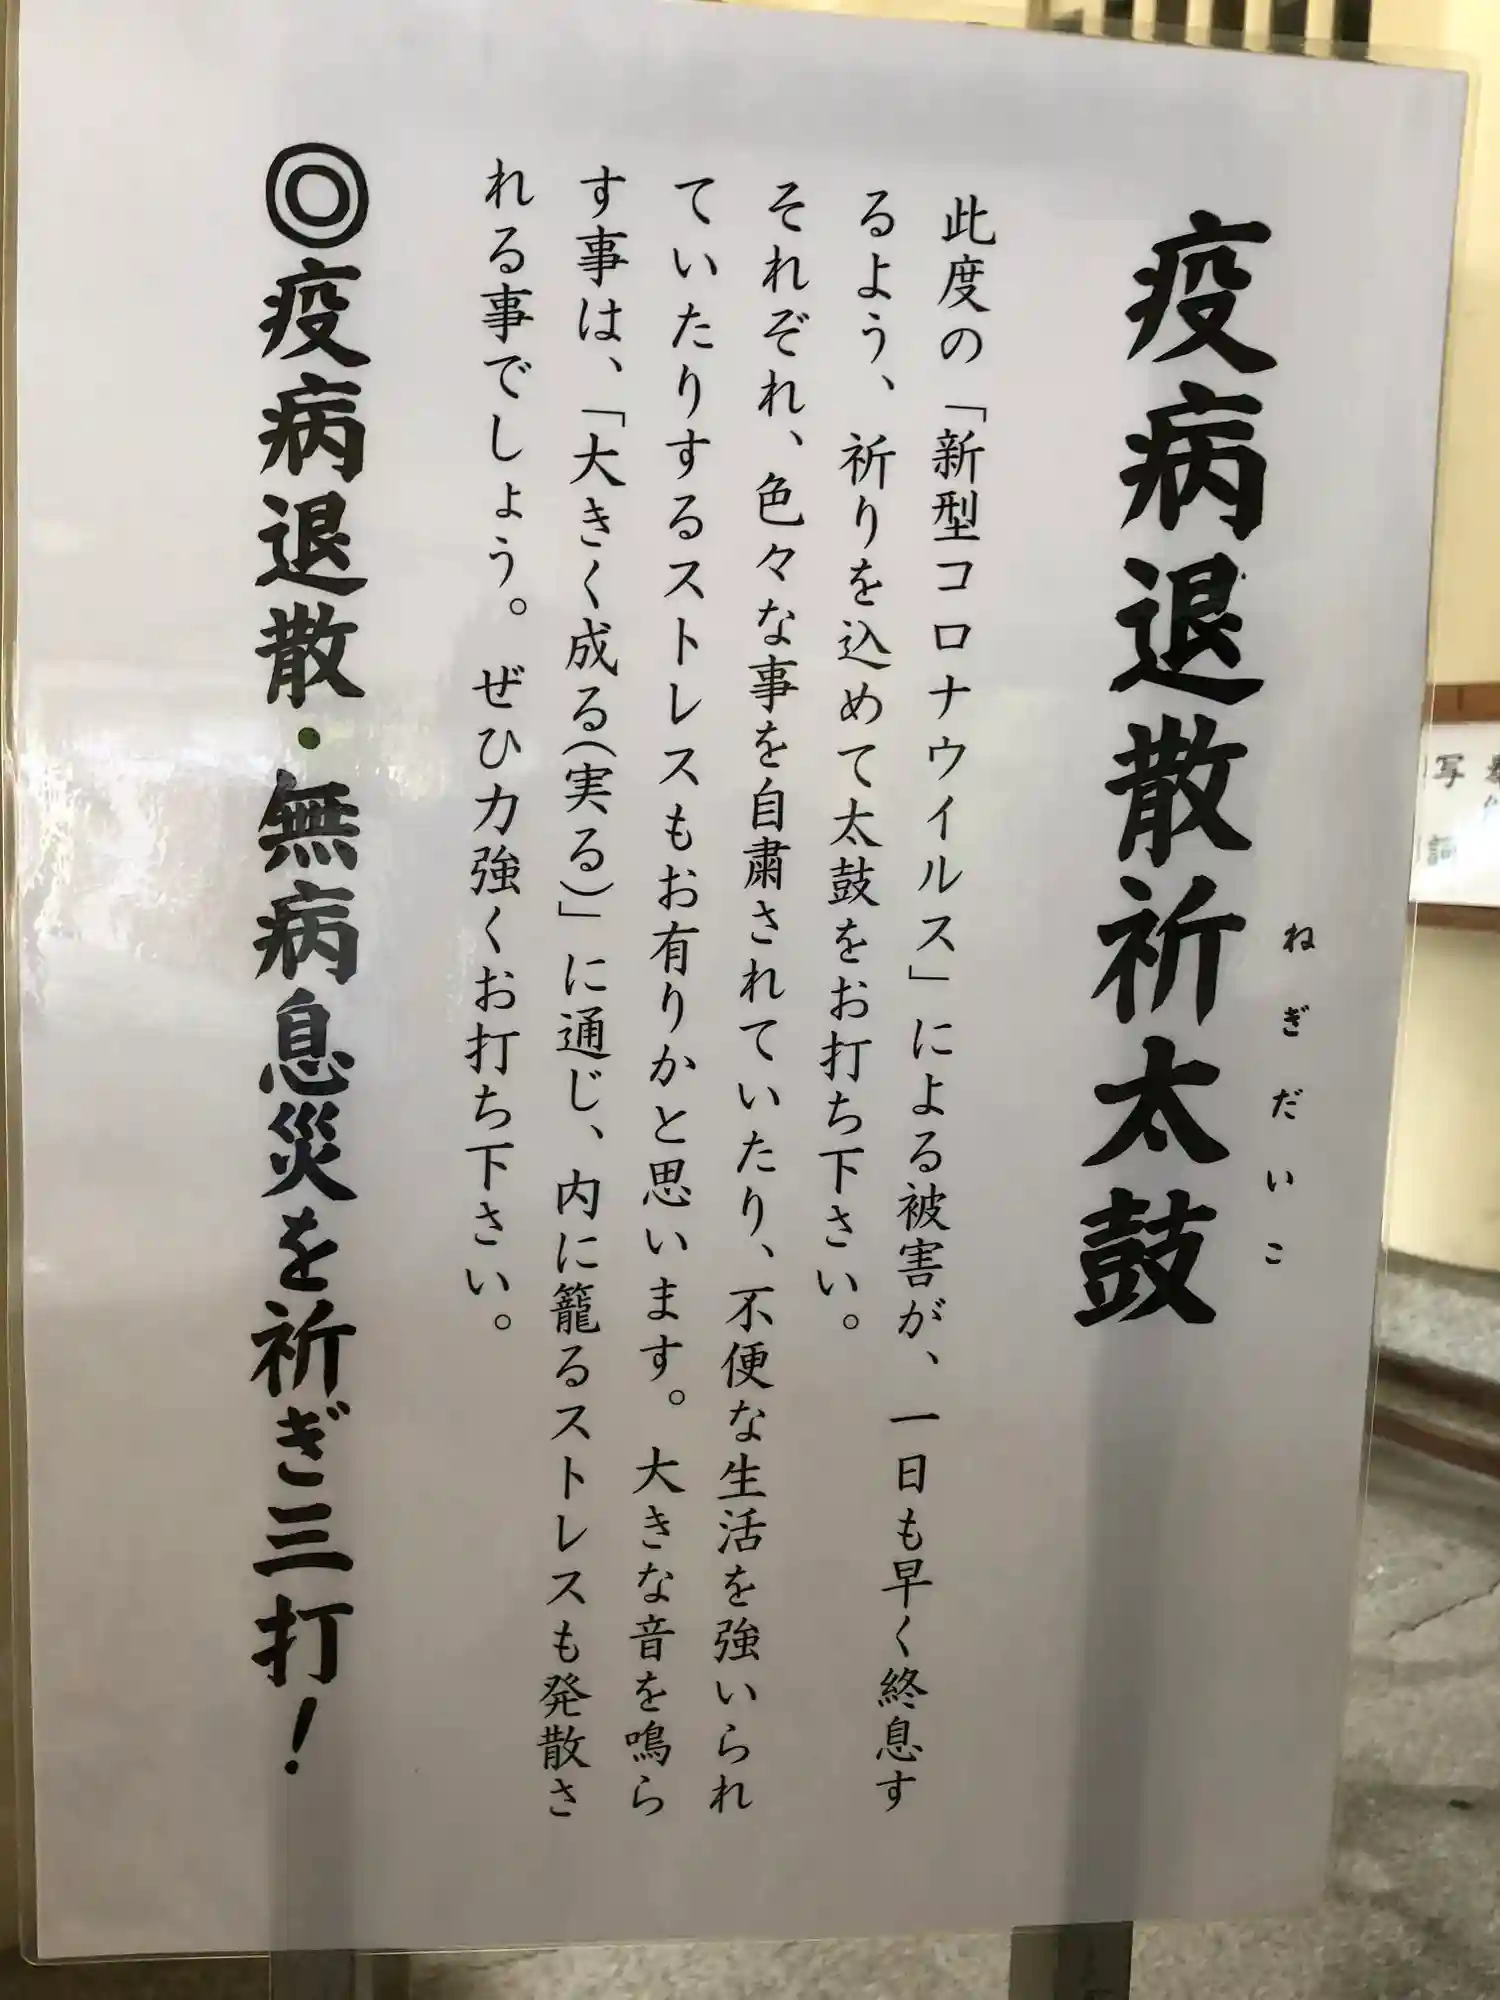 疫病退散祈太鼓
ねぎだいこ
此度の「新型コロナウィルス」による被害が、一日も早く終息す
るよう、祈りを込めて太鼓をお打ち下さい。
それぞれ、色々な事を自粛されていたり、不便な生活を強いられ
ていたりするストレスもお有りかと思います。大きな音を鳴ら
す事は、「大きく成る(実る)」に通じ、内に籠るストレスも発散さ
れる事でしょう。ぜひ力強くお打ち下さい。
◎疫病退散・無病息災を祈ぎ三打!
写